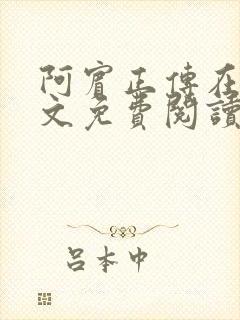 阿賓正傳在
文免費閱讀
呂本中